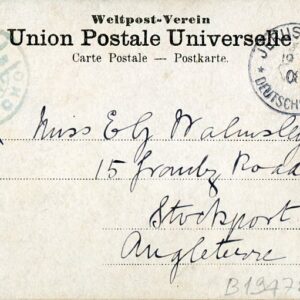 Weltpost-Verein
Union Postale Universelle
Carte Postale — Postkarte.
Miss Elz Walmsley
15 Granby Road
Stockport
Angleterre
B1947